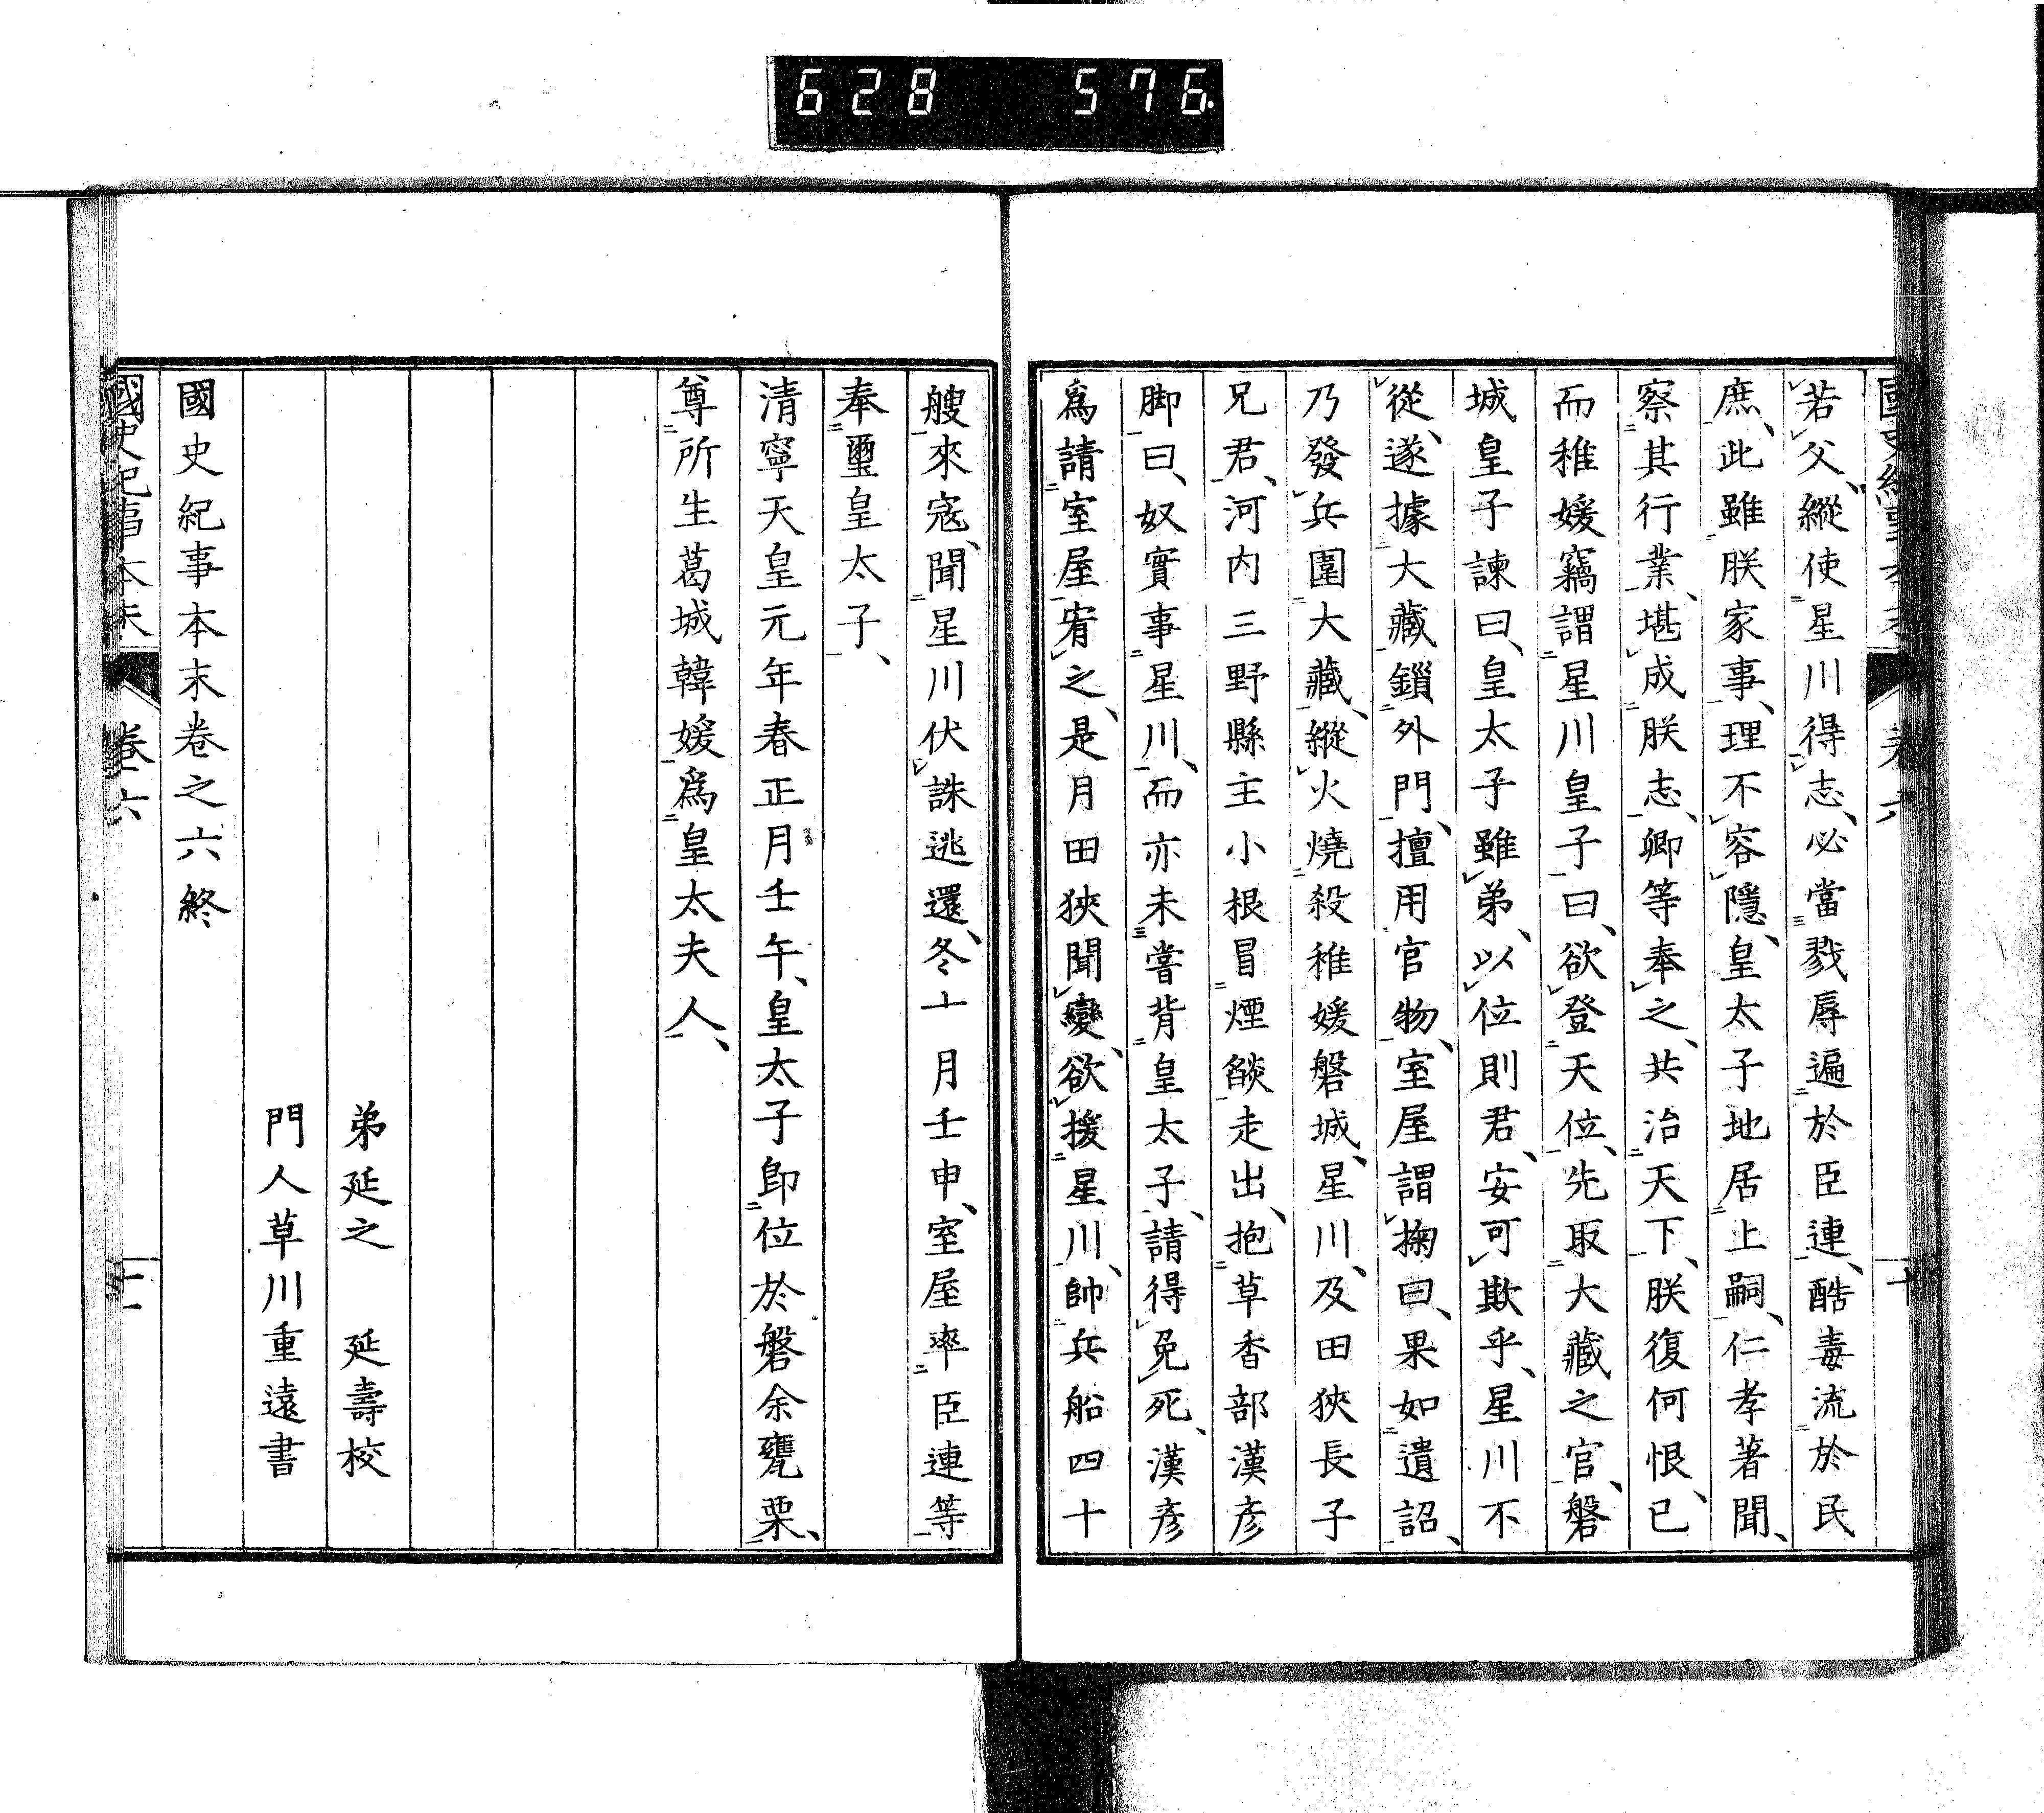 628 576.
若父、縱使星川得志、必當戮辱遍於臣連、酷毒流於民
庶、此雖朕家事、理不容隱、皇太子地居上嗣、仁孝著聞、
察其行業、堪成朕志、卿等奉之、共治天下、朕復何恨、已
而稚媛竊謂星川皇子曰、欲登天位、先取大藏之官、磐
城皇子諫曰、皇太子雖弟、以位則君、安可欺乎、星川不
從、遂據大藏鎖外門、擅用官物、室屋謂掬曰、果如遺詔、
乃發兵圍大藏、縱火燒殺稚媛磐城、星川、及田狹長子
兄君、河内三野縣主小根冒煙燄走出、抱草香部漢彥
脚曰、奴實事星川、而亦未嘗背皇太子、請得免死、漢彥
爲請室屋宥之、是月田狹聞變、欲援星川、帥兵船四十
艘來寇、聞星川伏誅逃還、冬十月壬申、室屋率臣連等
奉璽皇太子、
清寧天皇元年春正月壬午、皇太子卽位於磐余甕栗、
尊所生葛城韓媛爲皇太夫人、
弟延之　延壽校
門人草川重遠書
國史紀事本末卷之六終
國史紀事本末　卷六　十一